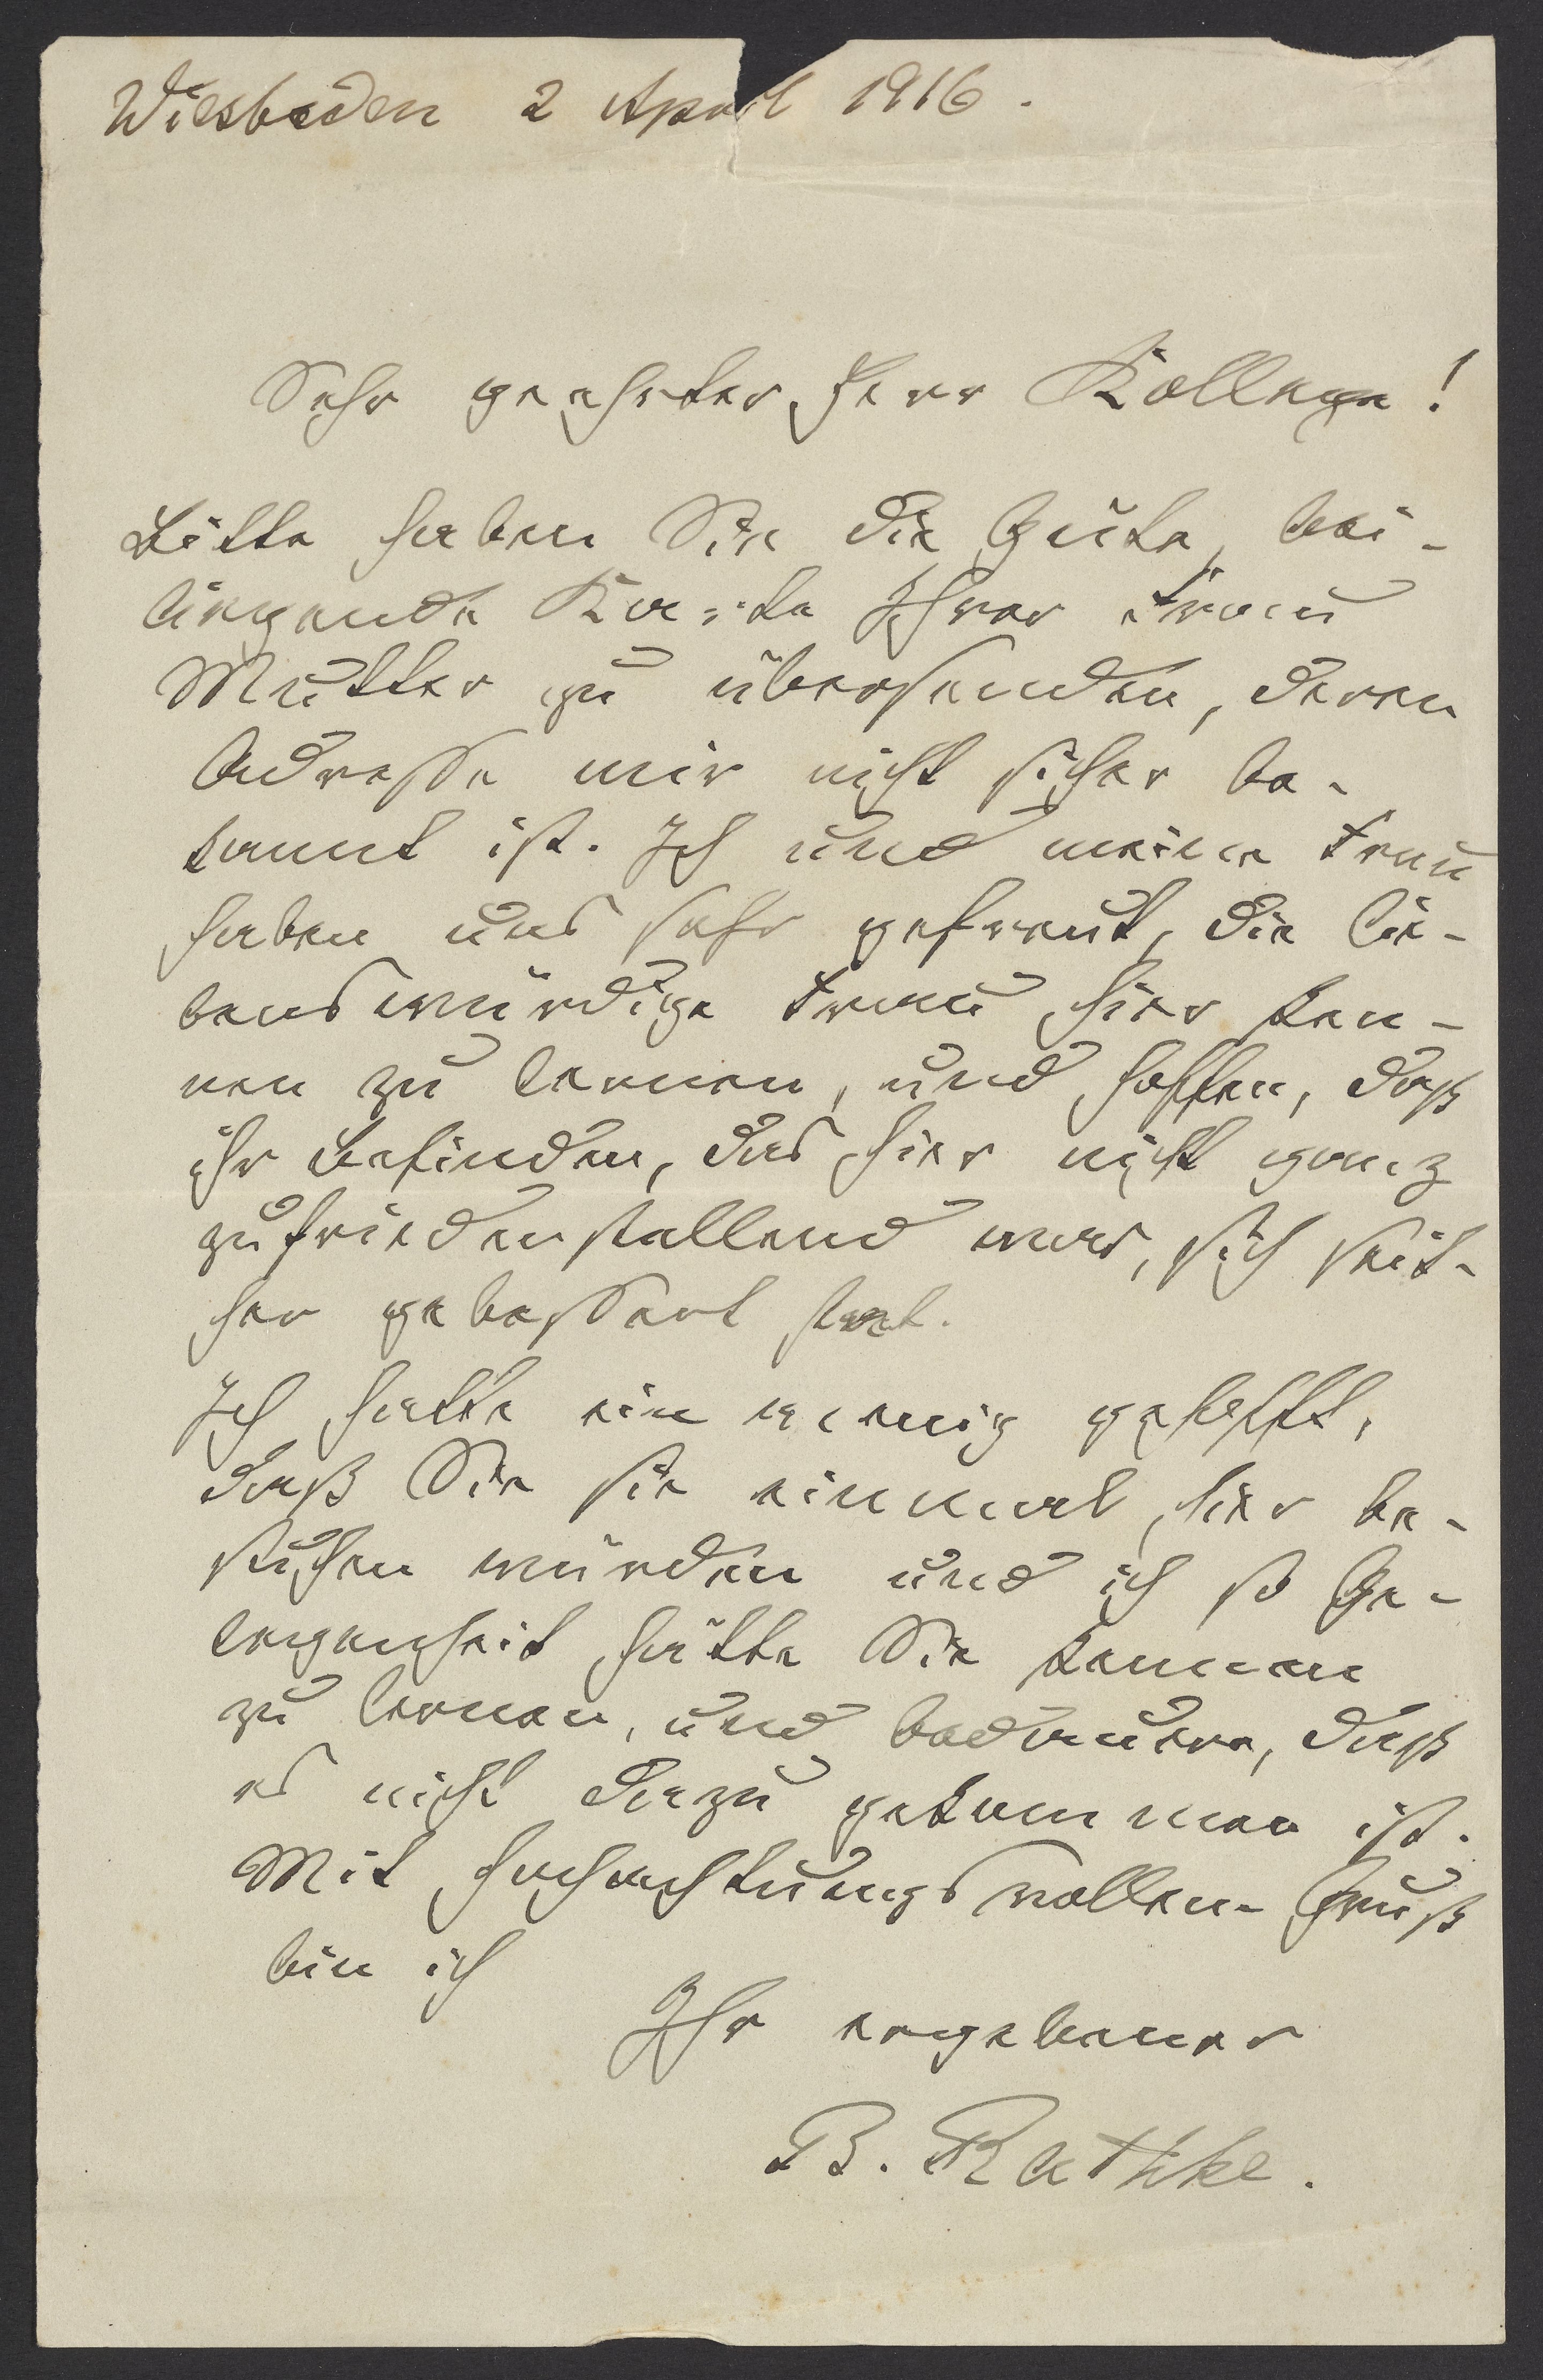 Wiesbaden 2 April 1916.
Sehr geehrter Herr Kollege!
Bitte haben Sie die Güte, bei-
liegende Karte Ihrer Frau
Mutter zu übersenden, deren
Adresse mir nicht sicher be-
kannt ist. Ich und meine Frau
haben uns sehr gefreut, die lie-
benswürdige Frau hier ken-
nen zu lernen, und hoffen, daß
ihr Befinden, das hier nicht ganz
zufriedenstellend war, sich seit-
her gebessert hat.
Ich hatte ein wenig gehofft,
daß Sie sie einmal hier be-
suchen würden und ich so Ge-
legenheit hätte Sie kennen
zu lernen, und bedauere, daß
es nicht dazu gekommen ist.
Mit hochachtungsvollen Gruß
bin ich
Ihr ergebener
B. Rathke.